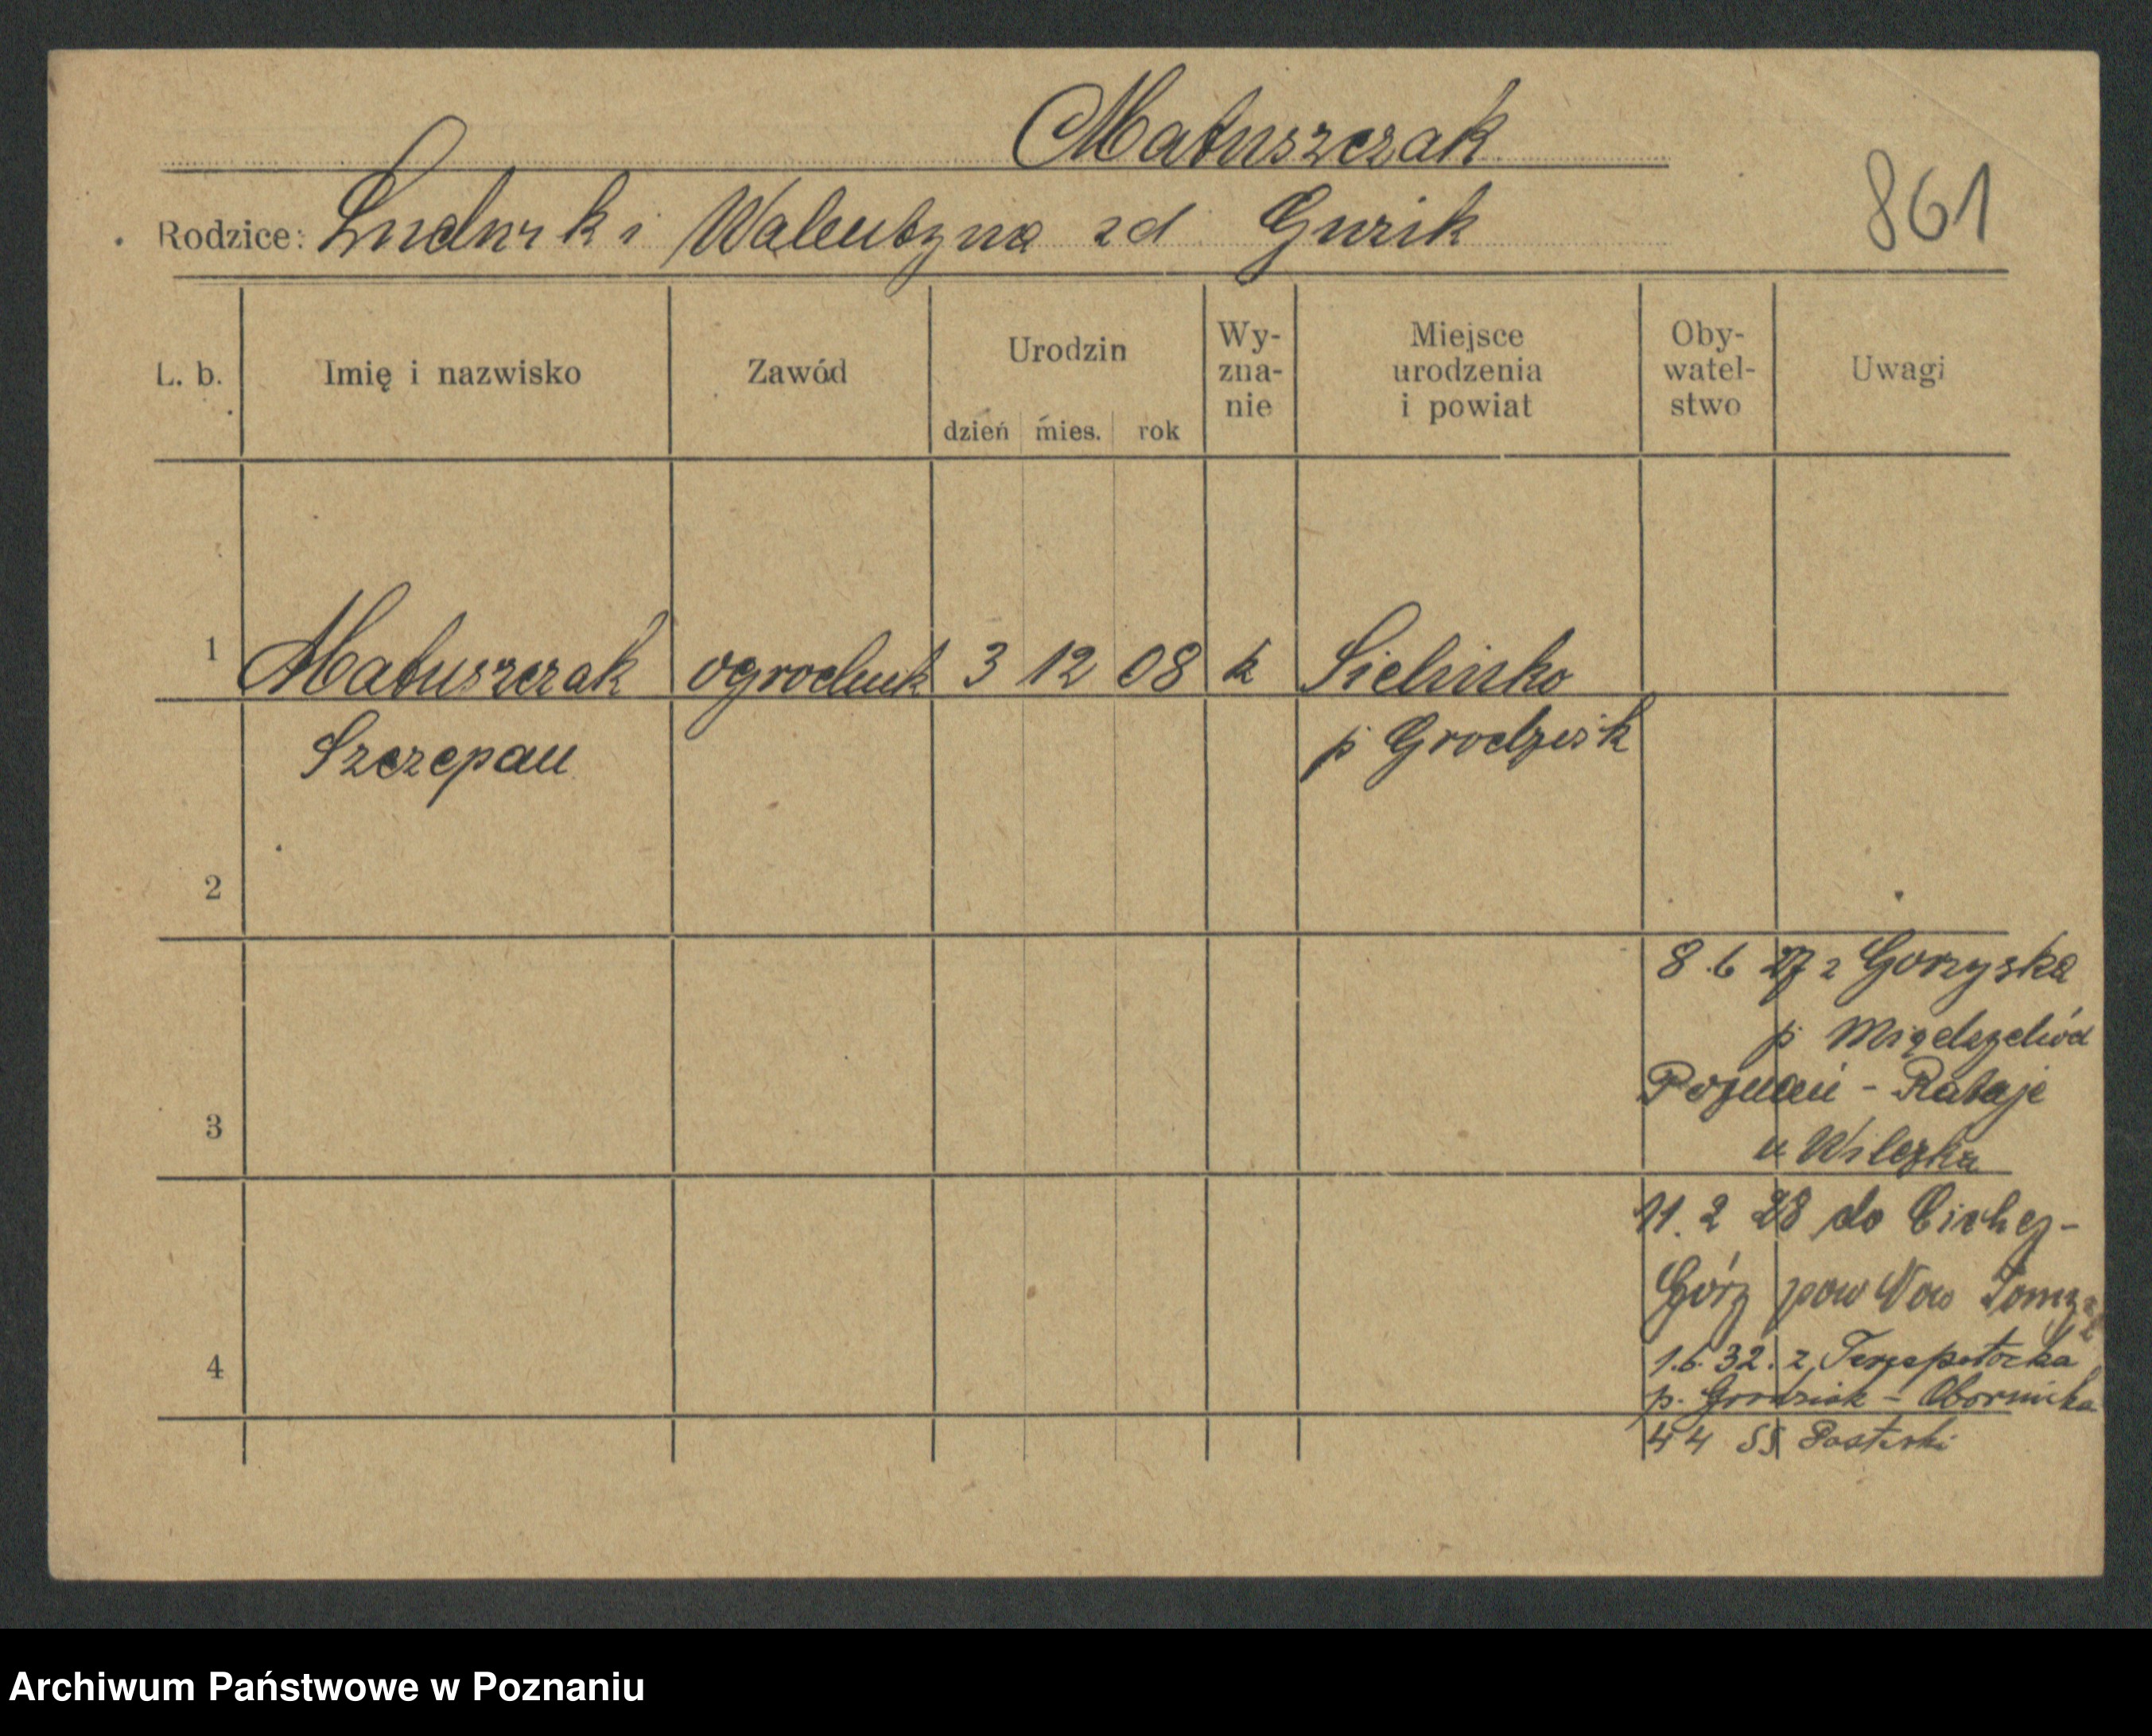 Matuszczak
861
Rodzice: Ludwik i Walentyna zd Guzik
L. b.
Imię i nazwisko
Zawód
Urodzin
dzień mies. rok
Wy-
zna-
nie
Miejsce
urodzenia
i powiat
Oby-
watel-
stwo
Uwagi
1 Matuszczak ogrodnik 3 12 08 k Sielinko
Szczepan p Grodzisk
2
8.6 27 z Gorzyska
p Międzychód
Poznań - Rataje
u Wilczka
3
11.2 28 do Cichej-
Góry pow Now Tomyśl
1.6.32. z
4
p. Grodzisk - Obornicka
44 55
Archiwum Państwowe w Poznaniu